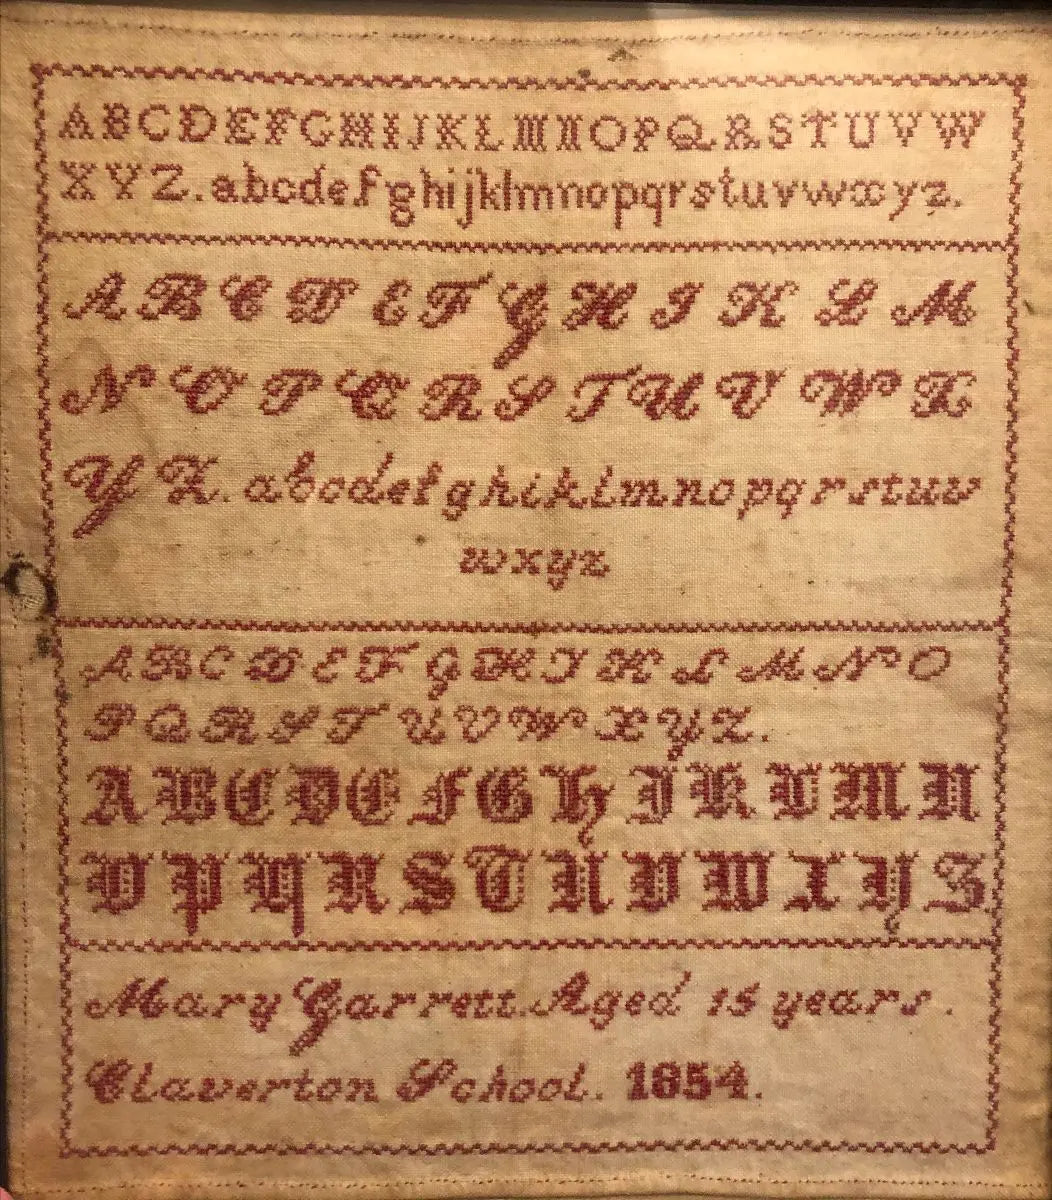 ABCDEFGHIJKLMNOPQRSTUVW
XYZ.abcdefghijklmnopqrstuvwxyz.
A B C D E F G H I K L M
N O P Q R S T U V W X
Y Z. abcdefghiklmnopqrstuv
wxyz
A B C D E F G H I K L M N O
P Q R S T U V W X Y Z.
A B C D E F G H I K L M N
O P Q R S T U V W X Y Z
Mary Garrett. Aged 15 years.
Claverton School. 1854.